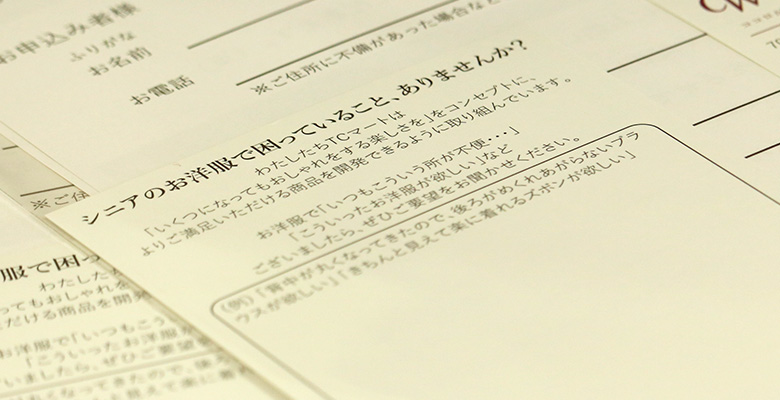 お申込み者様
ふりがな
お名前
お電話
※ご住所に不備があった場合など
CW
シニアのお洋服で困っていること、ありませんか?
わたしたちTCマートは
「いくつになってもおしゃれをする楽しさを」をコンセプトに、
よりご満足いただける商品を開発できるように取り組んでいます。
お洋服で「いつもこういう所が不便・・・」
「こういったお洋服が欲しい」など
ございましたら、ぜひご要望をお聞かせください。
(例)「背中が丸くなってきたので、後ろがめくれあがらないブラ
ウスが欲しい」「きちんと見えて楽に着れるズボンが欲しい」
※ご住
服で困っ
わたしたち
ってもおしゃれを
だける商品を開発
お洋服で「いつもこう
「こういったお洋服が
いましたら、ぜひご要望
丸くなってきたので、後ろ
と見えて楽に着